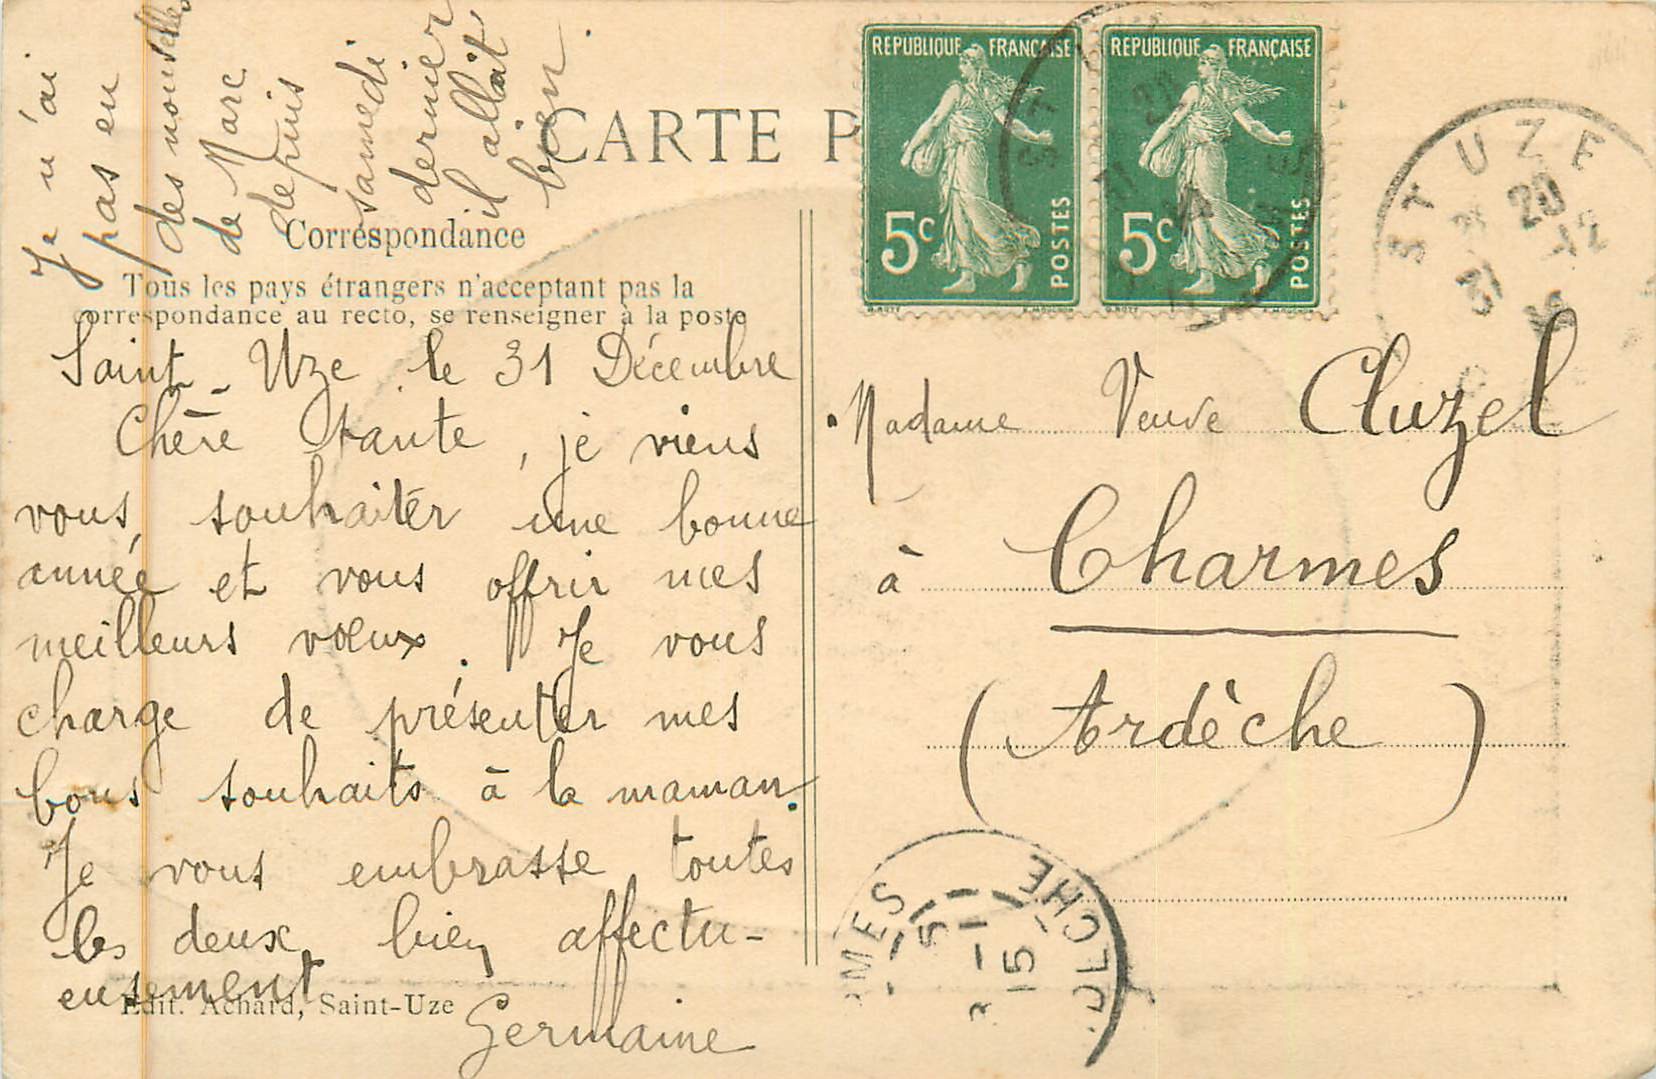 Je n'ai
pas eu
des nouvelles
de Marc
depuis
samedi
dernier
il allait
bien.
CARTE P
REPUBLIQUE FRANÇAISE
5c
POSTES
REPUBLIQUE FRANÇAISE
5c
POSTES
ST UZE
20
31 12
Correspondance
Tous les pays étrangers n'acceptant pas la
correspondance au recto, se renseigner à la poste
Saint-Uze le 31 Décembre
Chère tante, je viens
vous souhaiter une bonne
année et vous offrir mes
meilleurs vœux. Je vous
charge de présenter mes
bons souhaits à la maman.
Je vous embrasse toutes
les deux bien affectu-
eusement
Germaine
Edit. Achard, Saint-Uze
Madame Veuve Cluzel
à Charmes
(Ardèche)
MES
DÈCHE
15